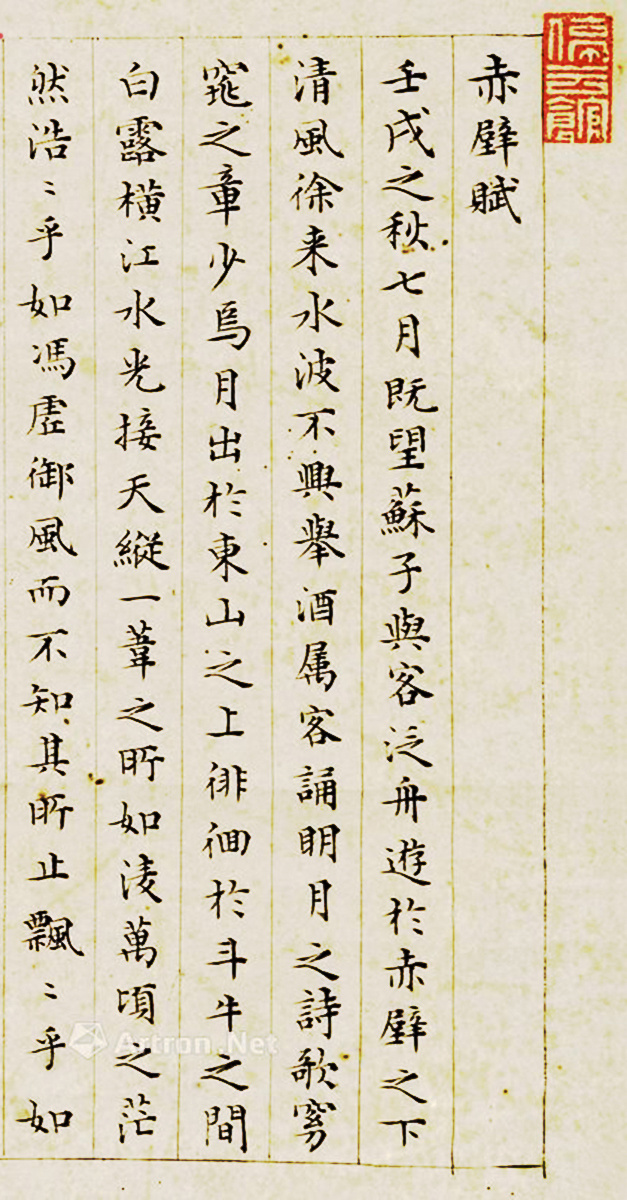 停云館
赤壁賦
壬戌之秋七月既望蘇子與客泛舟遊於赤壁之下
清風徐来水波不興舉酒属客誦明月之詩歌窈
窕之章少焉月出於東山之上徘徊於斗牛之間
白露横江水光接天縱一葦之所如淩萬頃之茫
然浩〻乎如馮虛御風而不知其所止飄〻乎如
Artron.Net